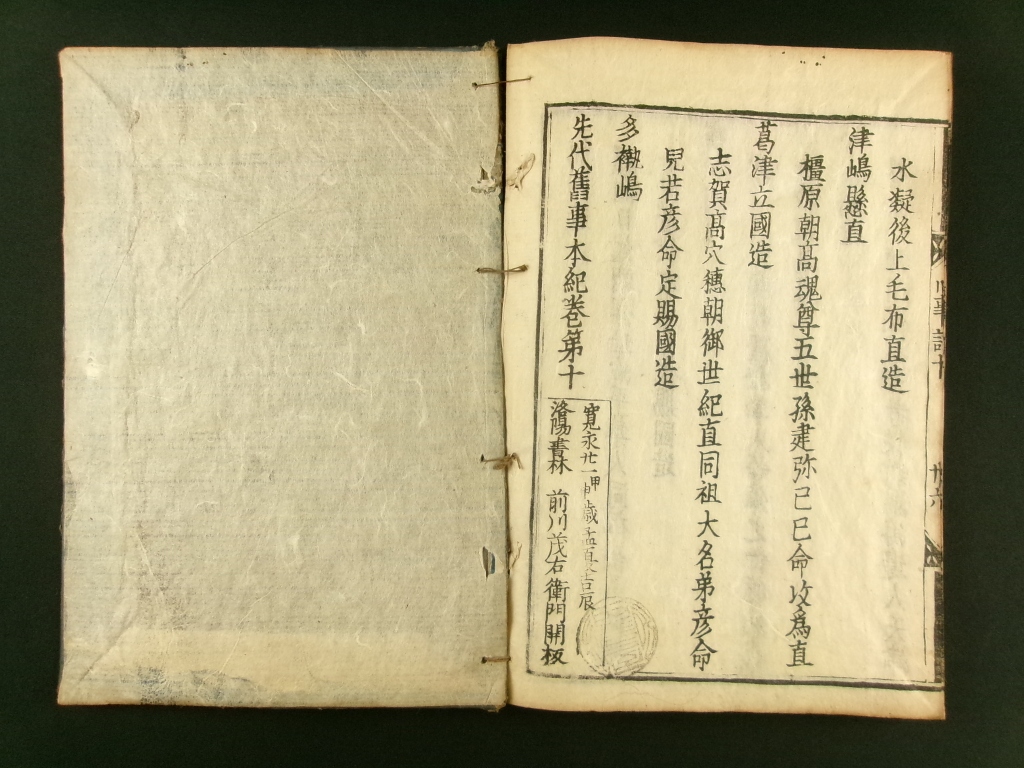 水凝後上毛布直造
津嶋縣直
橿原朝髙魂尊五世孫建弥己巳命攺為直
葛津立國造
志賀髙穴穗朝御世紀直同祖大名弟彦命
兒若彦命定賜國造
多褹嶋
先代舊事本紀卷第十
寛永廿一甲申歳孟夏吉辰
洛陽書林 前川茂右衛門開板